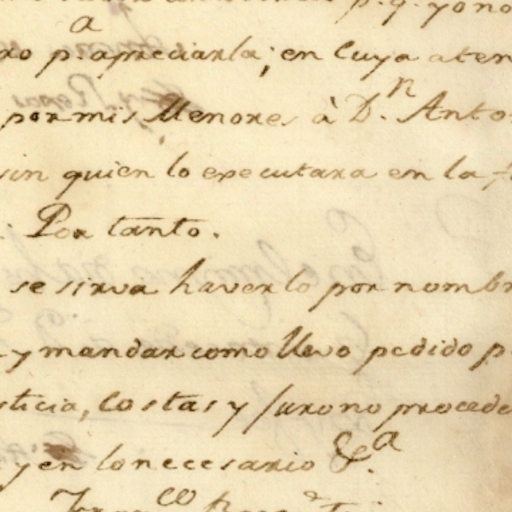 p.q. yo no
ro p.a apreciarla; en cuya aten
por mis Menores à D.n Anto
sin quien lo executara en la f
Por tanto.
se sirva haverlo por nombr
y mandar como llevo pedido p
sticia, costas y juro no procede
y en lo necesario &.a